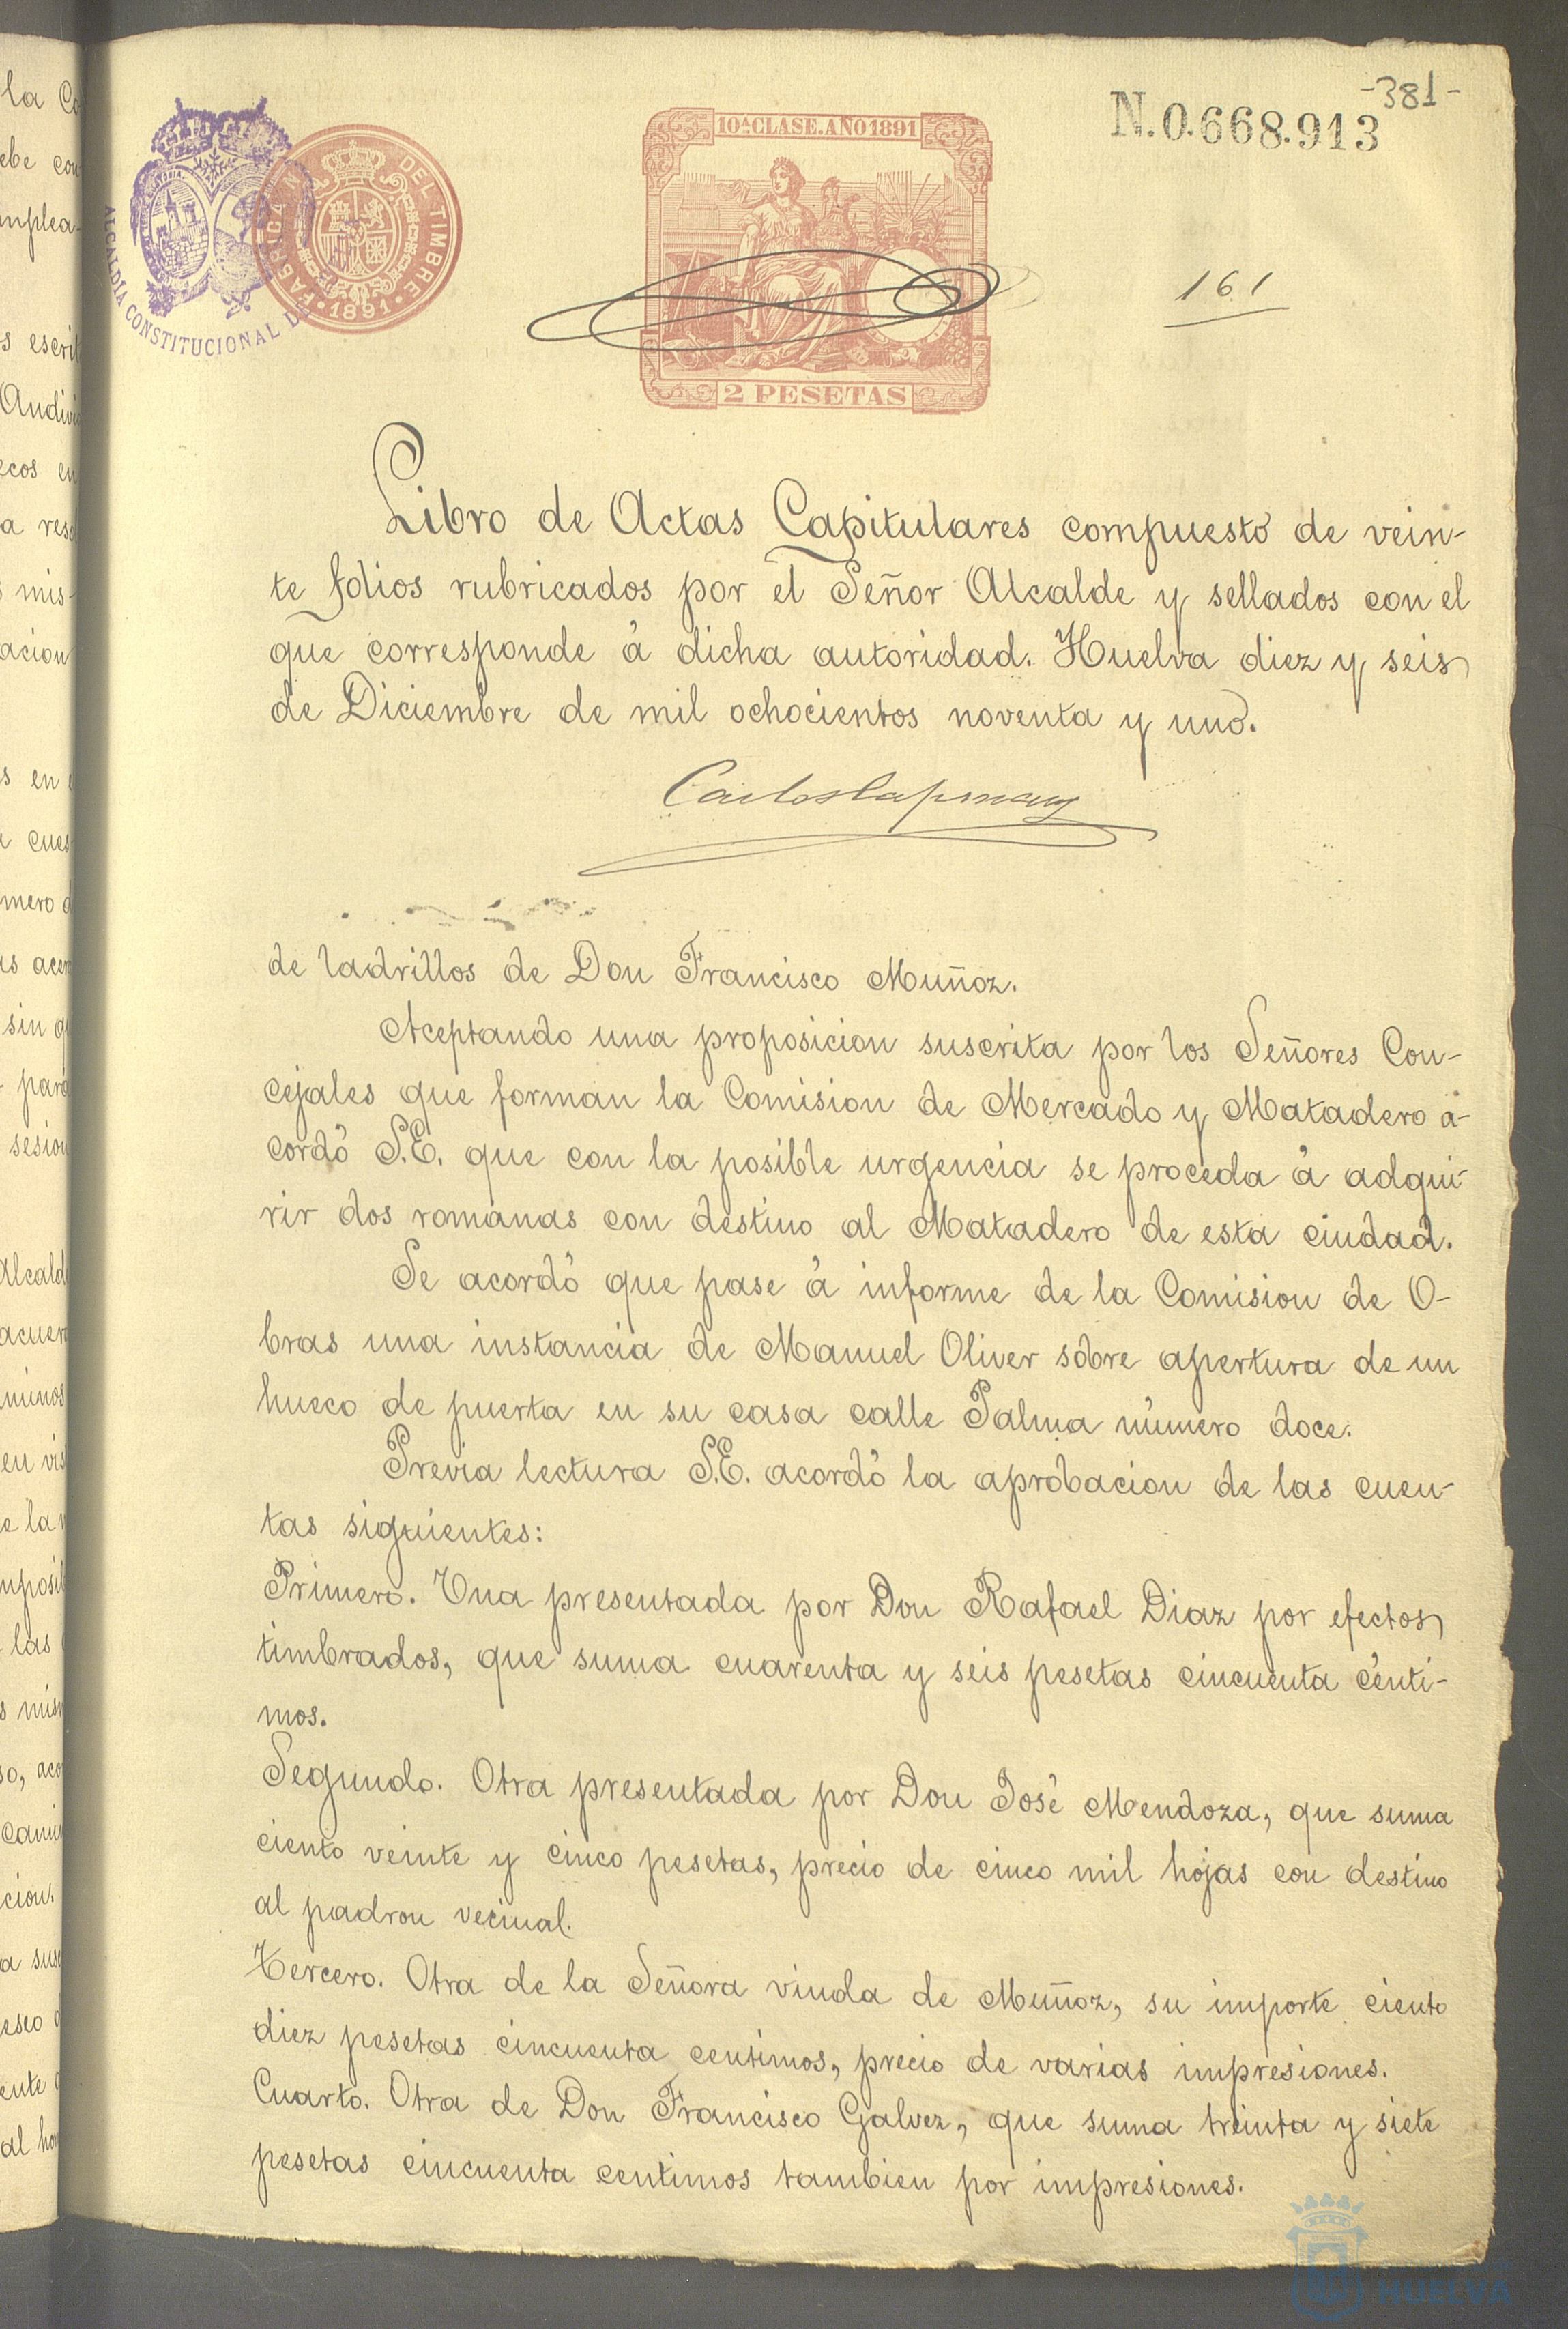 -381-
N.0.668.913
10ª CLASE. AÑO 1891
ALCALDÍA CONSTITUCIONAL DE
FABRICA N DEL TIMBRE
1891
161
2 PESETAS
Libro de Actas Capitulares compuesto de vein-
te folios rubricados por el Señor Alcalde y sellados con el
que corresponde á dicha autoridad. Huelva diez y seis
de Diciembre de mil ochocientos noventa y uno.
Carlos Capmany
de ladrillos de Don Francisco Muñoz.
Aceptando una proposicion suscrita por los Señores Con-
cejales que forman la Comision de Mercado y Matadero a-
cordó S.E. que con la posible urgencia se proceda á adqui-
rir dos romanas con destino al Matadero de esta ciudad.
Se acordó que pase á informe de la Comision de O-
bras una instancia de Manuel Oliver sobre apertura de un
hueco de puerta en su casa calle Palma número doce.
Previa lectura S.E. acordó la aprobacion de las cuen-
tas siguientes:
Primero. Una presentada por Don Rafael Diaz por efectos
timbrados, que suma cuarenta y seis pesetas cincuenta cénti-
mos.
Segundo. Otra presentada por Don José Mendoza, que suma
ciento veinte y cinco pesetas, precio de cinco mil hojas con destino
al padron vecinal.
Tercero. Otra de la Señora viuda de Muñoz, su importe ciento
diez pesetas cincuenta centimos, precio de varias impresiones.
Cuarto. Otra de Don Francisco Galvez, que suma treinta y siete
pesetas cincuenta centimos tambien por impresiones.
HUELVA